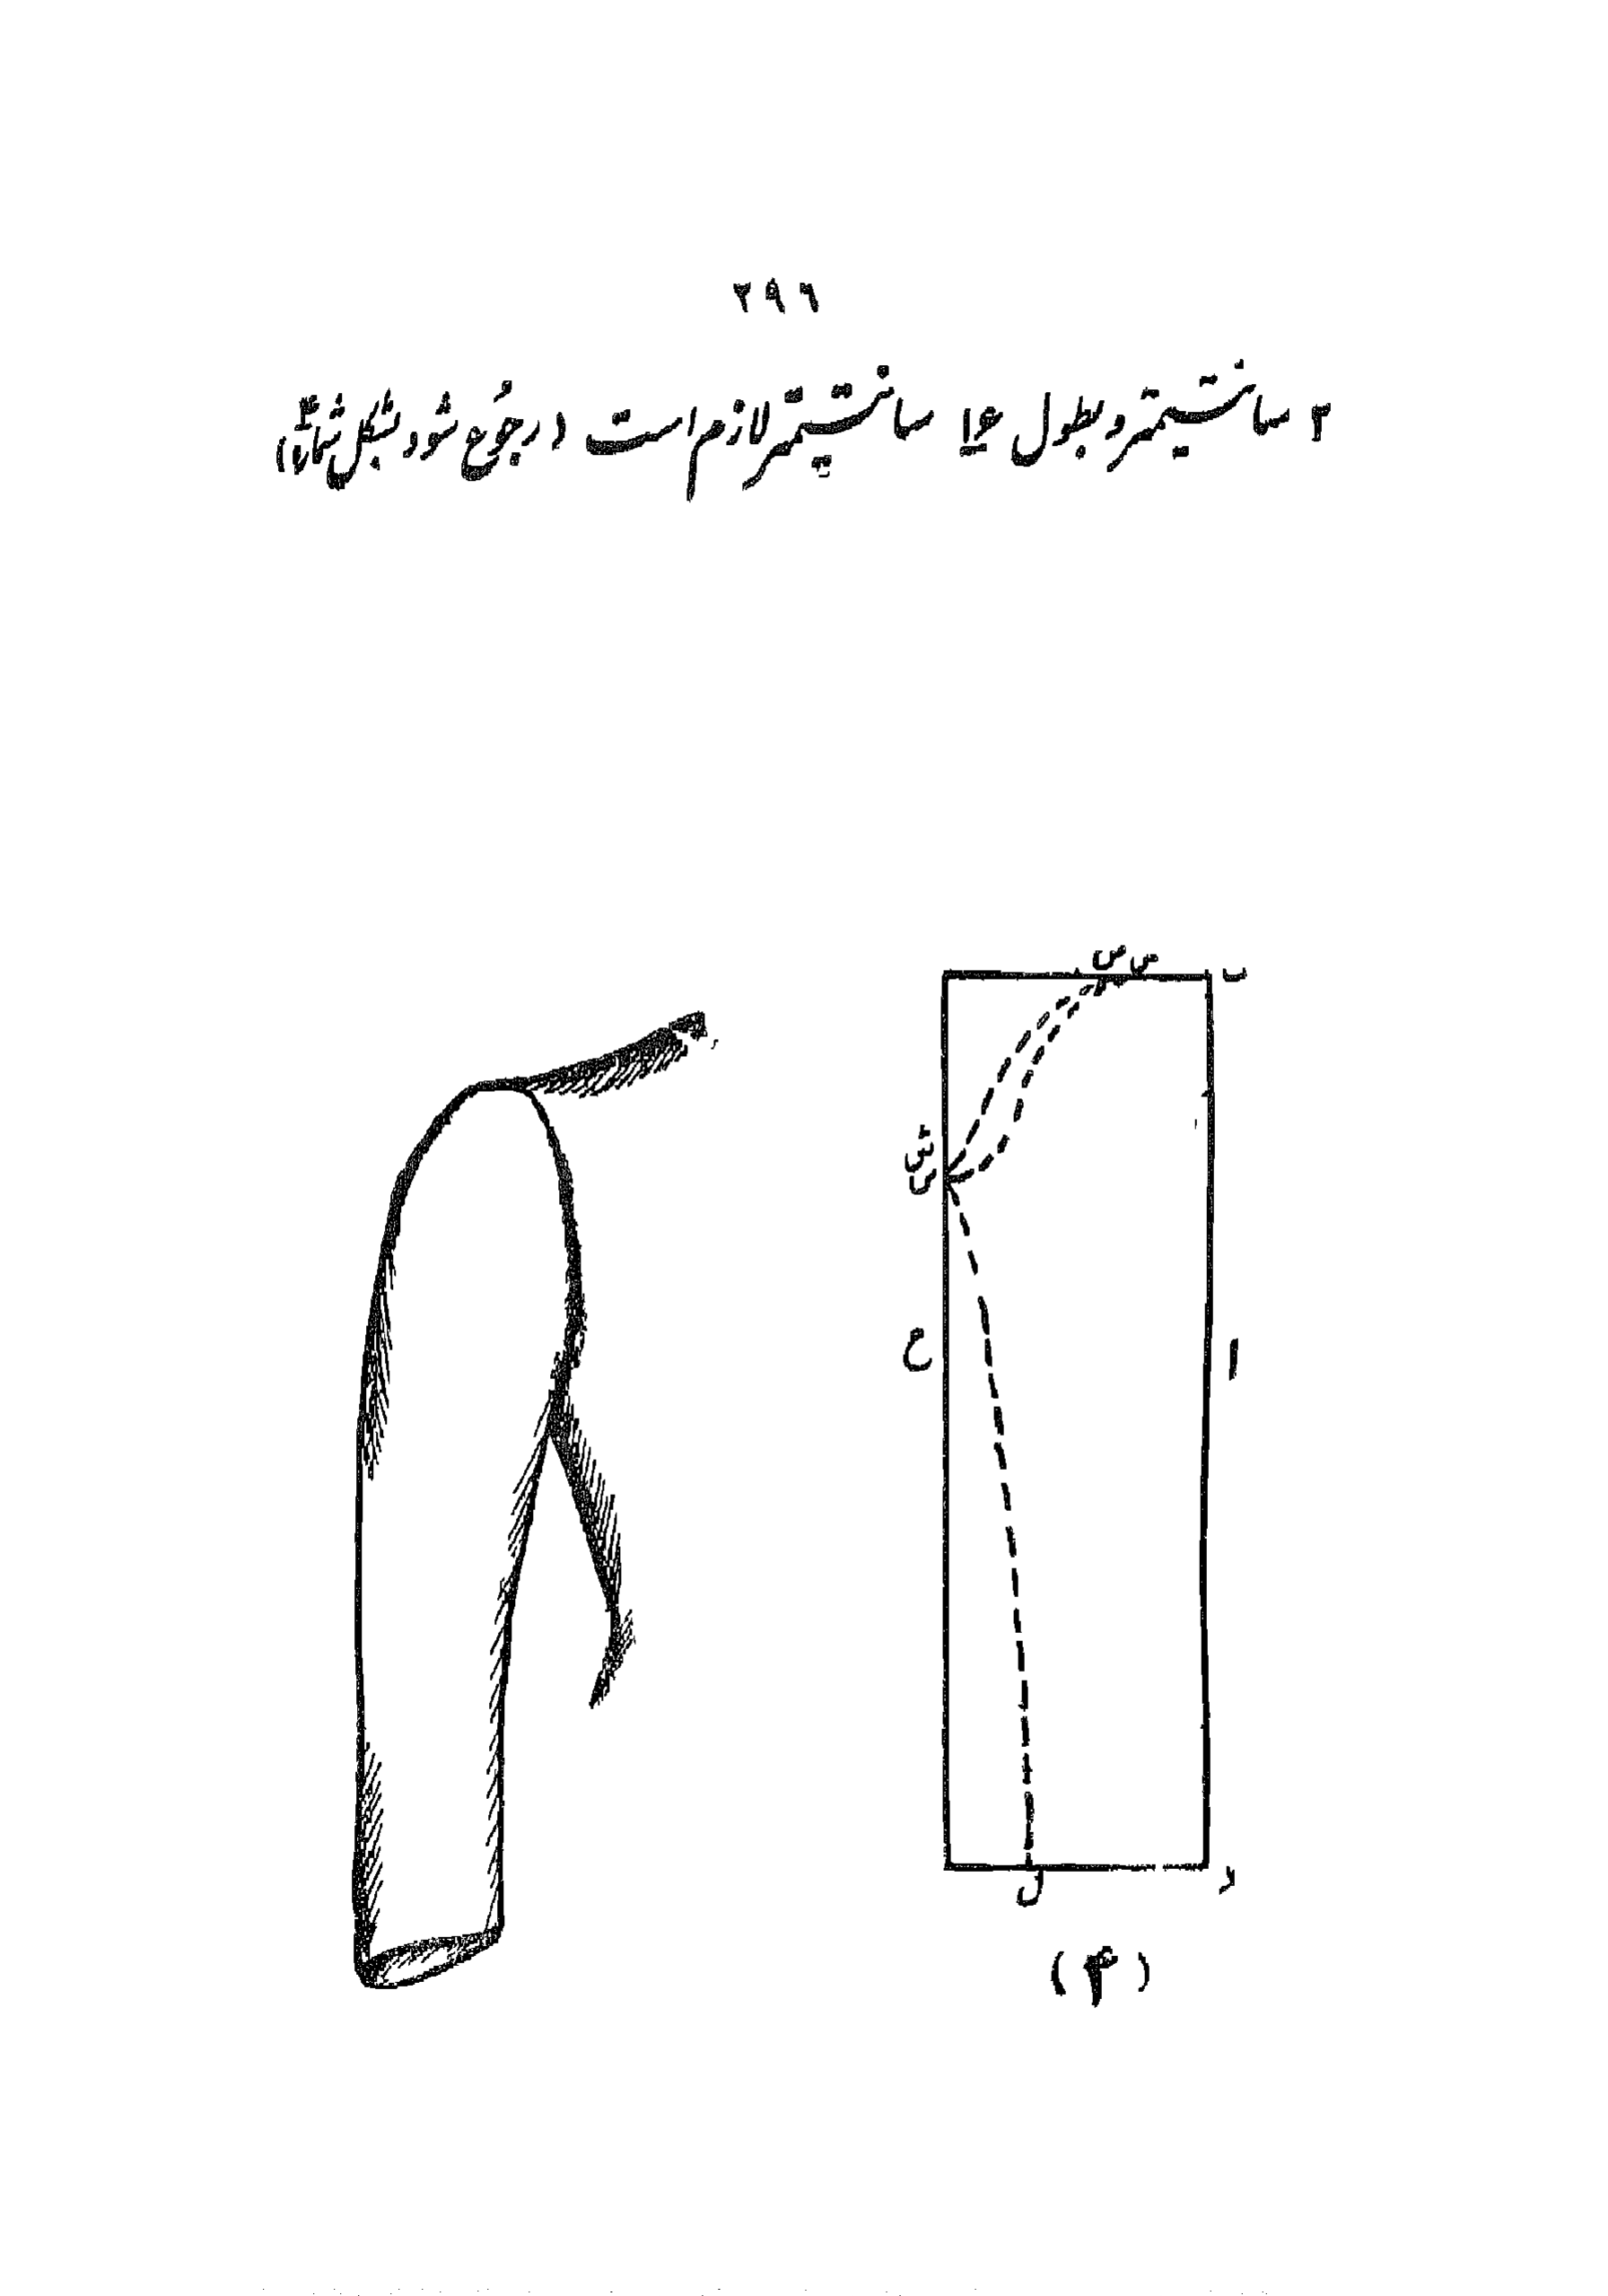 ۲۹۶
۲ سانتیمتر و بطول ۱۶ سانتیمتر لازم است (رجوع شود بشکل شماره ۴)
ص س
ب
ش
س
ح
ا
ل
د
(۴)